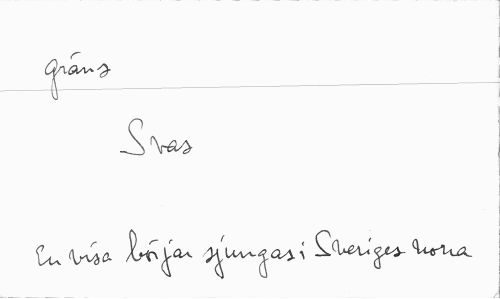 gräns
Svas
En visa börjar sjungas i Sveriges norra